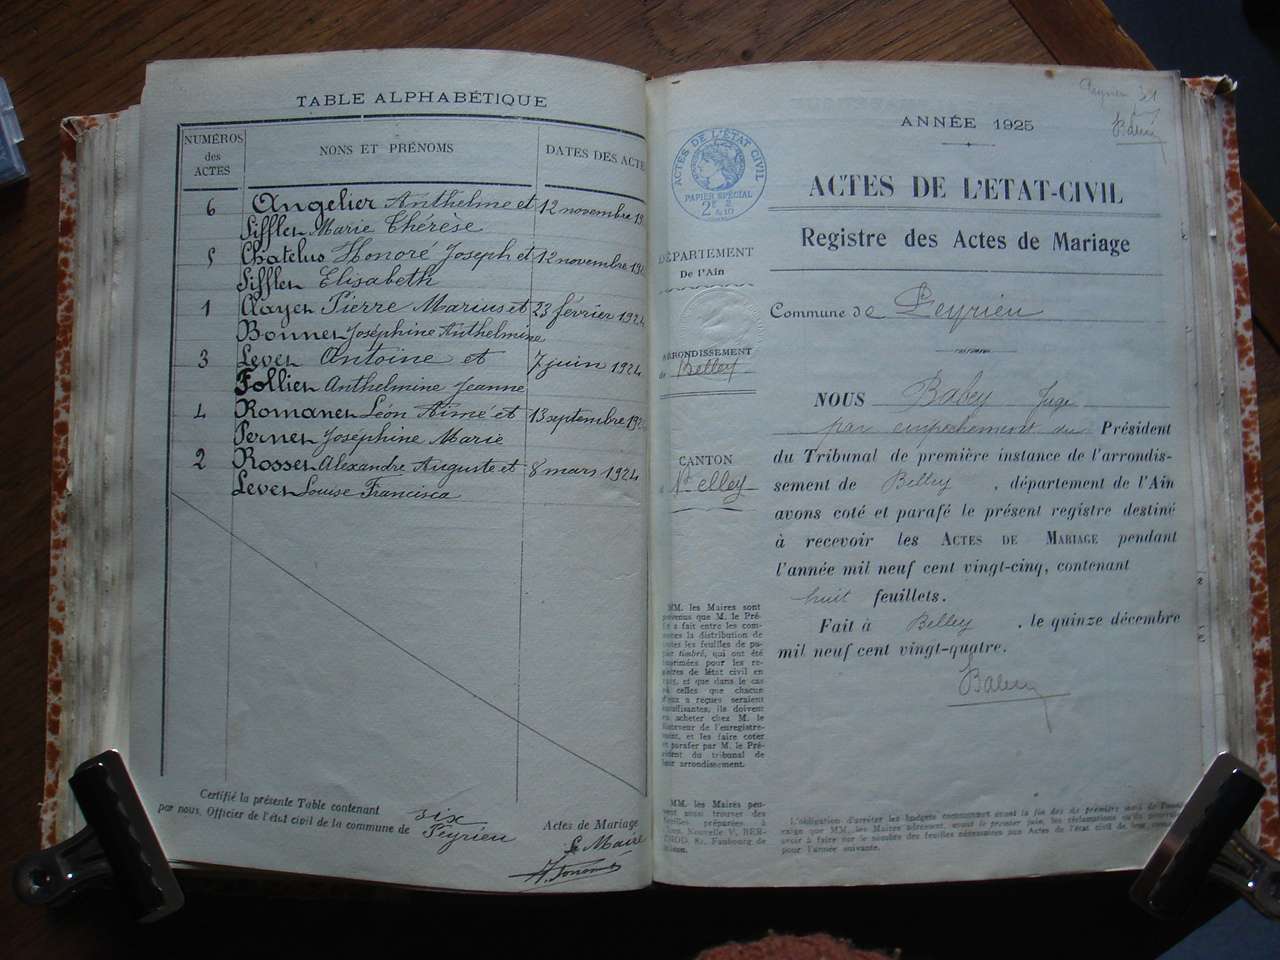 TABLE ALPHABÉTIQUE
NUMÉROS des ACTES
NONS ET PRÉNOMS
DATES DES ACTE
6 Angelier Anthelme et 12 novembre 19
Siffler Marie Thérèse
5 Chatelus Honoré Joseph et 12 novembre 192
Siffler Elisabeth
1 Clayer Pierre Marius et 23 février 1924
Bonner Joséphine Anthelmine
3 Lever Antoine et 7 juin 1924
Follier Anthelmine Jeanne
4 Romaner Léon Aimé et 13 septembre 192
Perner Joséphine Marie
2 Rosser Alexandre Auguste et 8 mars 1924
Lever Louise Francisca
Certifié la présente Table contenant six Actes de Mariage
par nous, Officier de l'état civil de la commune de Peyrieu
Le Maire
Peyrieu
ANNÉE 1925
ACTES DE L'ÉTAT CIVIL
PAPIER SPÉCIAL
ACTES DE L'ETAT-CIVIL
Registre des Actes de Mariage
DÉPARTEMENT
De l'Ain
Commune de Peyrieu
ARRONDISSEMENT
de Belley
NOUS Babey Juge
par empêchement du Président
du Tribunal de première instance de l'arrondis-
sement de Belley, département de l'Ain
avons coté et parafé le présent registre destiné
à recevoir les ACTES DE MARIAGE pendant
l'année mil neuf cent vingt-cinq, contenant
huit feuillets.
Fait à Belley, le quinze décembre
mil neuf cent vingt-quatre.
CANTON
Belley
MM. les Maires sont
prévenus que M. le Pré-
fet a fait entre les com-
munes la distribution de
toutes les feuilles de pa-
pier timbré, qui ont été
imprimées pour les re-
gistres de létat civil en
et que dans le cas
où celles que chacun
d'eux a reçues seraient
insuffisantes, ils doivent
en acheter chez M. le
Receveur de l'enregistre-
ment, et les faire coter
et parafer par M. le Pré-
sident du tribunal de
leur arrondissement.
MM. les Maires peu-
vent aussi trouver des
feuilles préparées à
Nouvelle V. BER-
Faubourg de
L'obligation d'arrêter les budgets communaux avant la fin des six premiers mois de l'année
exige que MM. les Maires adressent, avant le premier juin, les réclamations qu'ils pourraient
avoir à faire sur le nombre des feuilles nécessaires aux Actes de l'état civil de leur commune
pour l'année suivante.